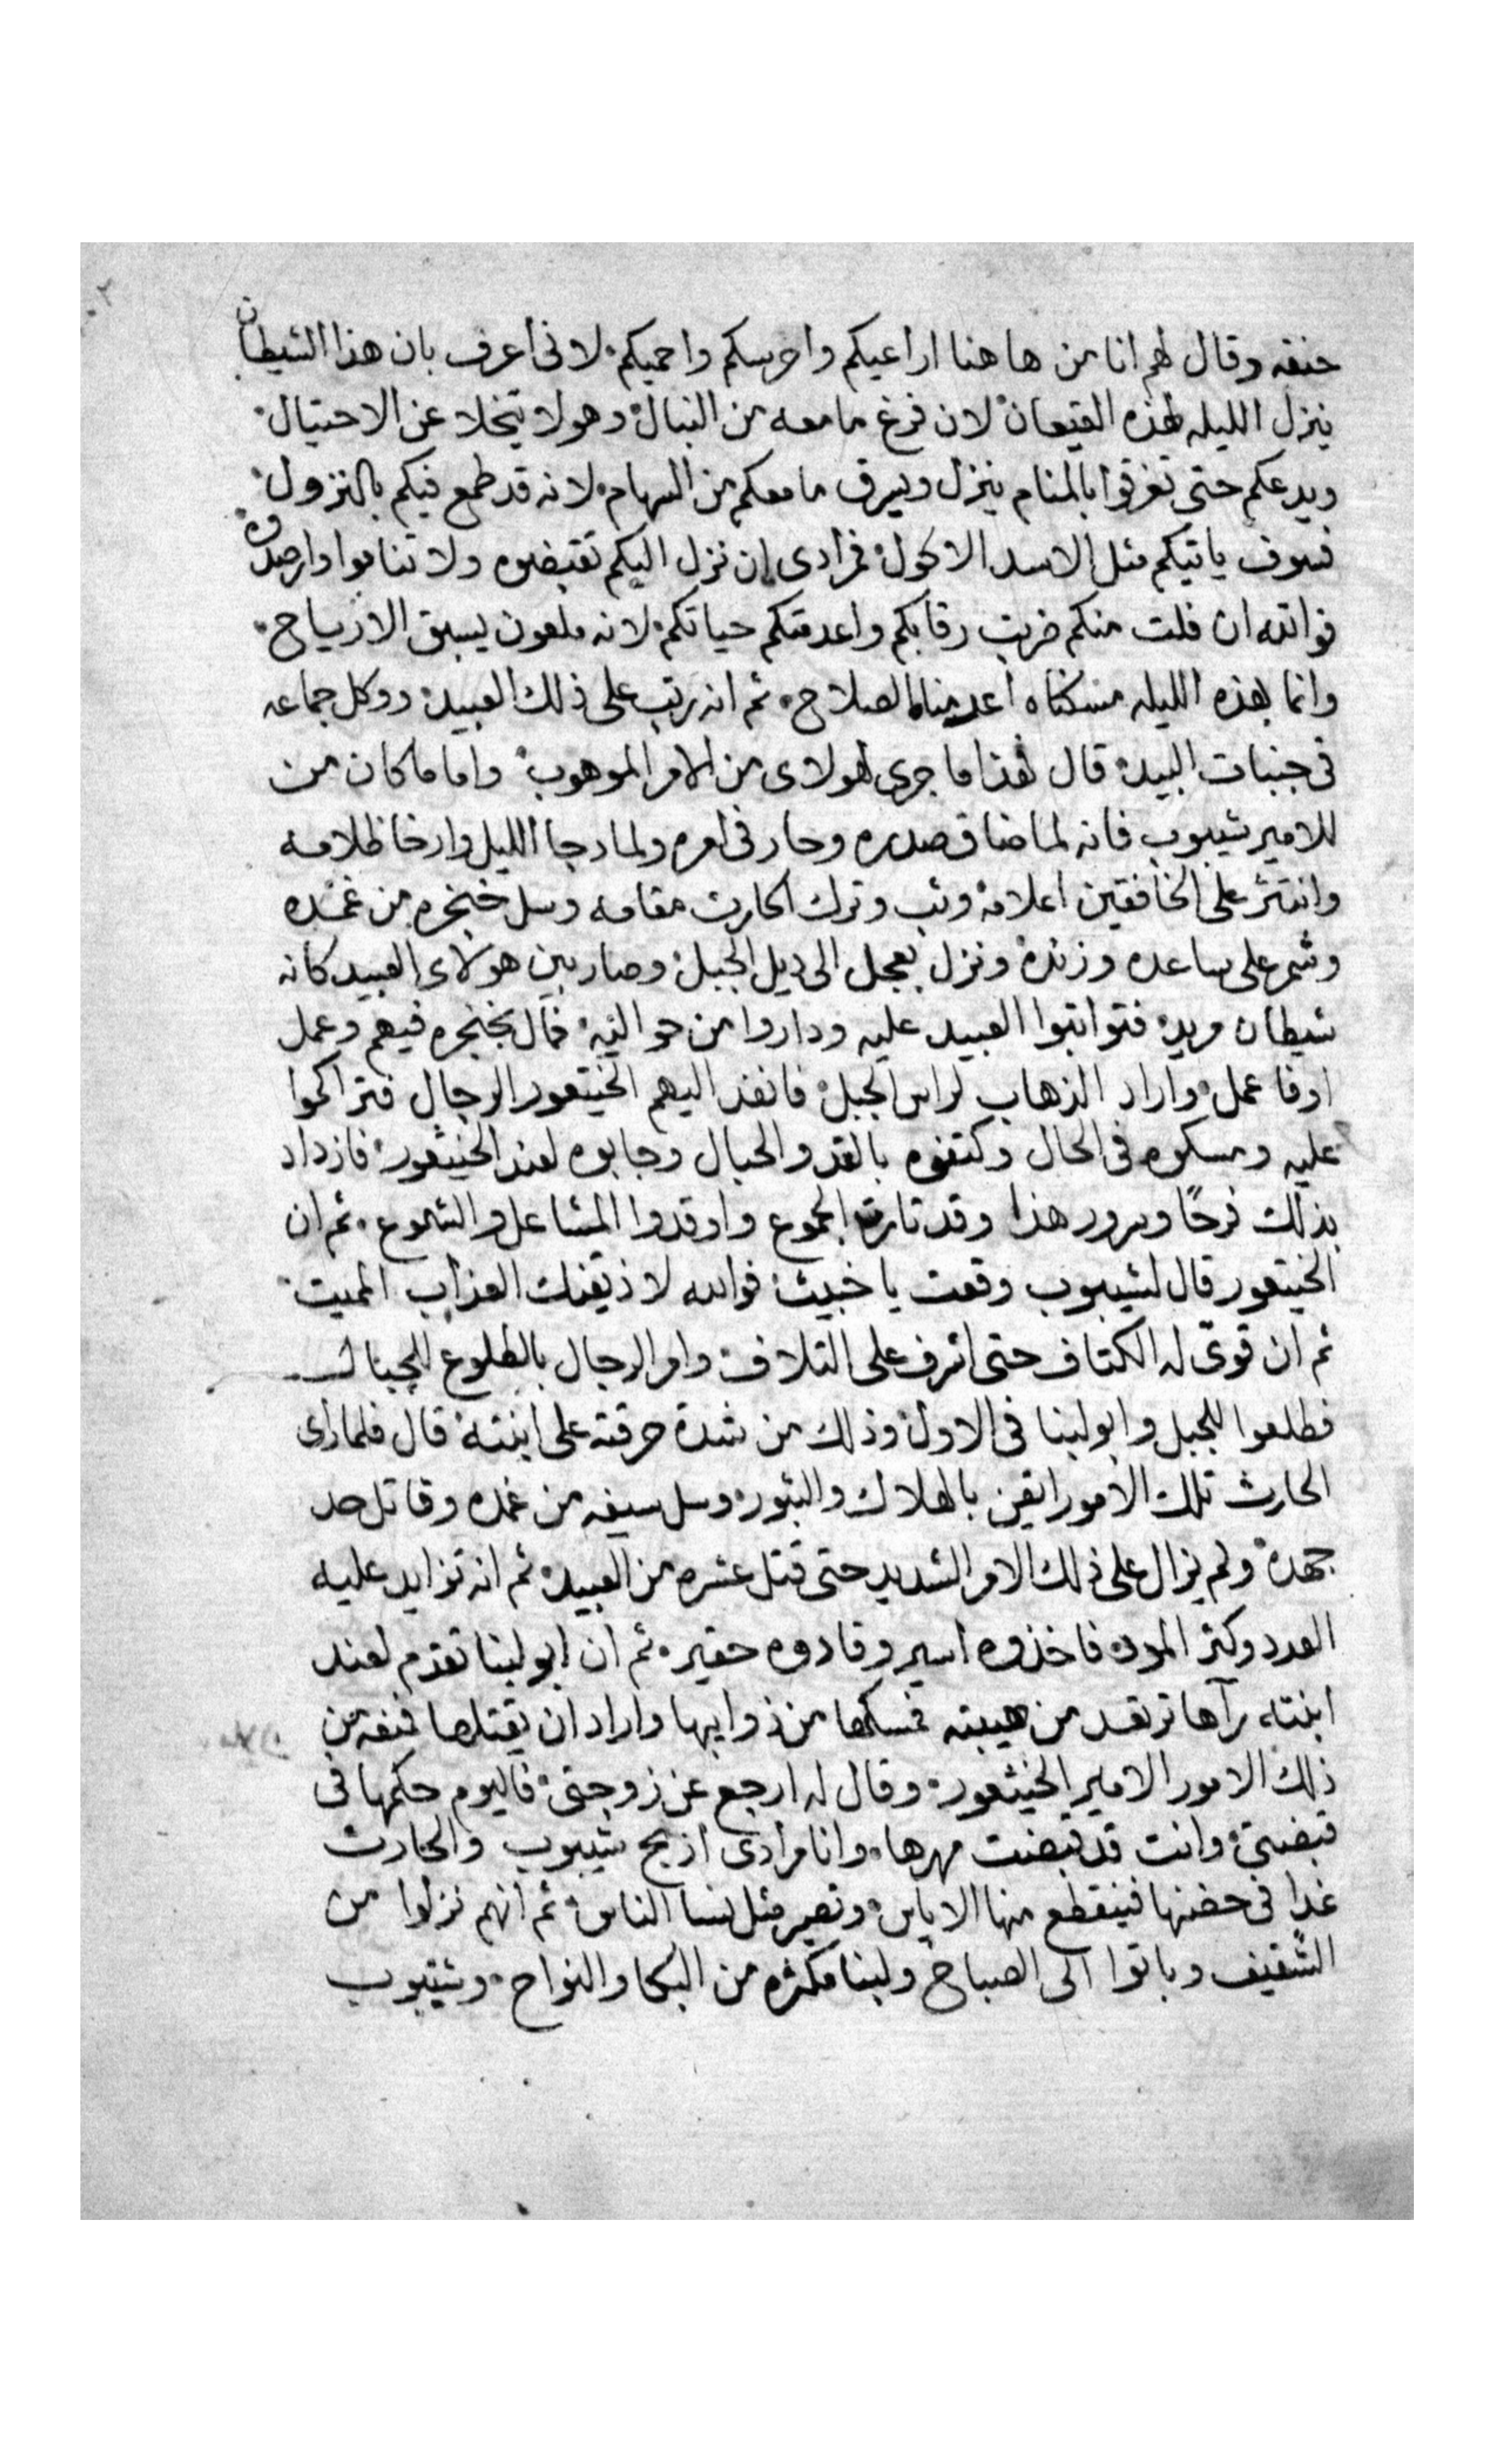 حنقه وقال لهم انا من هاهنا اراعيكم واحرسكم واحميكم لانى اعرف بان هذا الشيطان
ينزل الليله لهذه القيعان لان فرغ ما معه من النبال وهو لا يتخلا عن الاحتيال
ويدعكم حتى تغرقوا بالمنام ينزل ويسرق ما معكم من السهام لانه قد طمع فيكم بالنزول
فسوف ياتيكم مثل الاسد الاكول فمرادى ان نزل اليكم تقبضوه ولا تناموا وارصدوه
فوالله ان فلت منكم ضربت رقابكم واعدمتكم حياتكم لانه ملعون يسبق الارياح
وانما بهذه الليله مسكناه اعدمناه الصلاح ثم انه رتب على ذلك العبيد ووكل جماعه
فى جنبات البيد قال فهذا ما جرى لهولاى من الامر الموهوب واما ما كان من
للامير شيبوب فانه لما ضاق صدره وحار فى امره ولما دجا الليل وارخا ظلامه
وانتشر على الخافقين اعلامه وثب وترك الحارث مقامه وسل خنجره من غمده
وشمر على ساعده وزنده ونزل بعجل الى ديل الجبل وصار بين هولاى العبيد كانه
شيطان مريد فتواثبوا العبيد عليه وداروا من حواليه فمال بخنجره فيهم وعمل
اوفا عمل واراد الذهاب لراس الجبل فانفذ اليهم الخيثعور الرجال فتراكموا
عليه ومسكوه فى الحال وكتفوه بالقد والحبال وجابوه لعند الخيثعور فازداد
بذلك فرحًا وسرور هذا وقد تارت الجموع واوقدوا المشاعل والشموع ثم ان
الخيثعور قال لشيبوب وقعت يا خبيث فوالله لاذيقنك العذاب المميت
ثم ان قوّى له الكتاف حتى اشرف على التلاف وامر الرجال بالطلوع للجبال
فطلعوا للجبل وابو لبنا فى الاول وذلك من شدة حرقته على ابنته قال فلما راى
الحارث تلك الامور ايقن بالهلاك والثبور وسل سيفه من غمده وقاتل حد
جهده ولم يزال على ذلك الامر الشديد حتى قتل عشره من العبيد ثم انه تزايد عليه
العدد وكثر المدد فاخذوه اسير وقادوه حقير ثم ان ابو لبنا تقدم لعند
ابنته رآها ترتعد من هيبته فمسكها من ذوايبها واراد ان يقتلها فمنعه من
ذلك الامور الامير الخيثعور وقال له ارجع عن زوجتى فاليوم حكمها فى
قبضتى وانت قد قبضت مهرها وانا مرادى اذبح شيبوب والحارث
غدًا فى حضنها فينقطع منها الاياس وتصير مثل نسا الناس ثم انهم نزلوا من
الشقيف وباتوا الى الصباح ولبنا مكثره من البكا والنواح وشيبوب